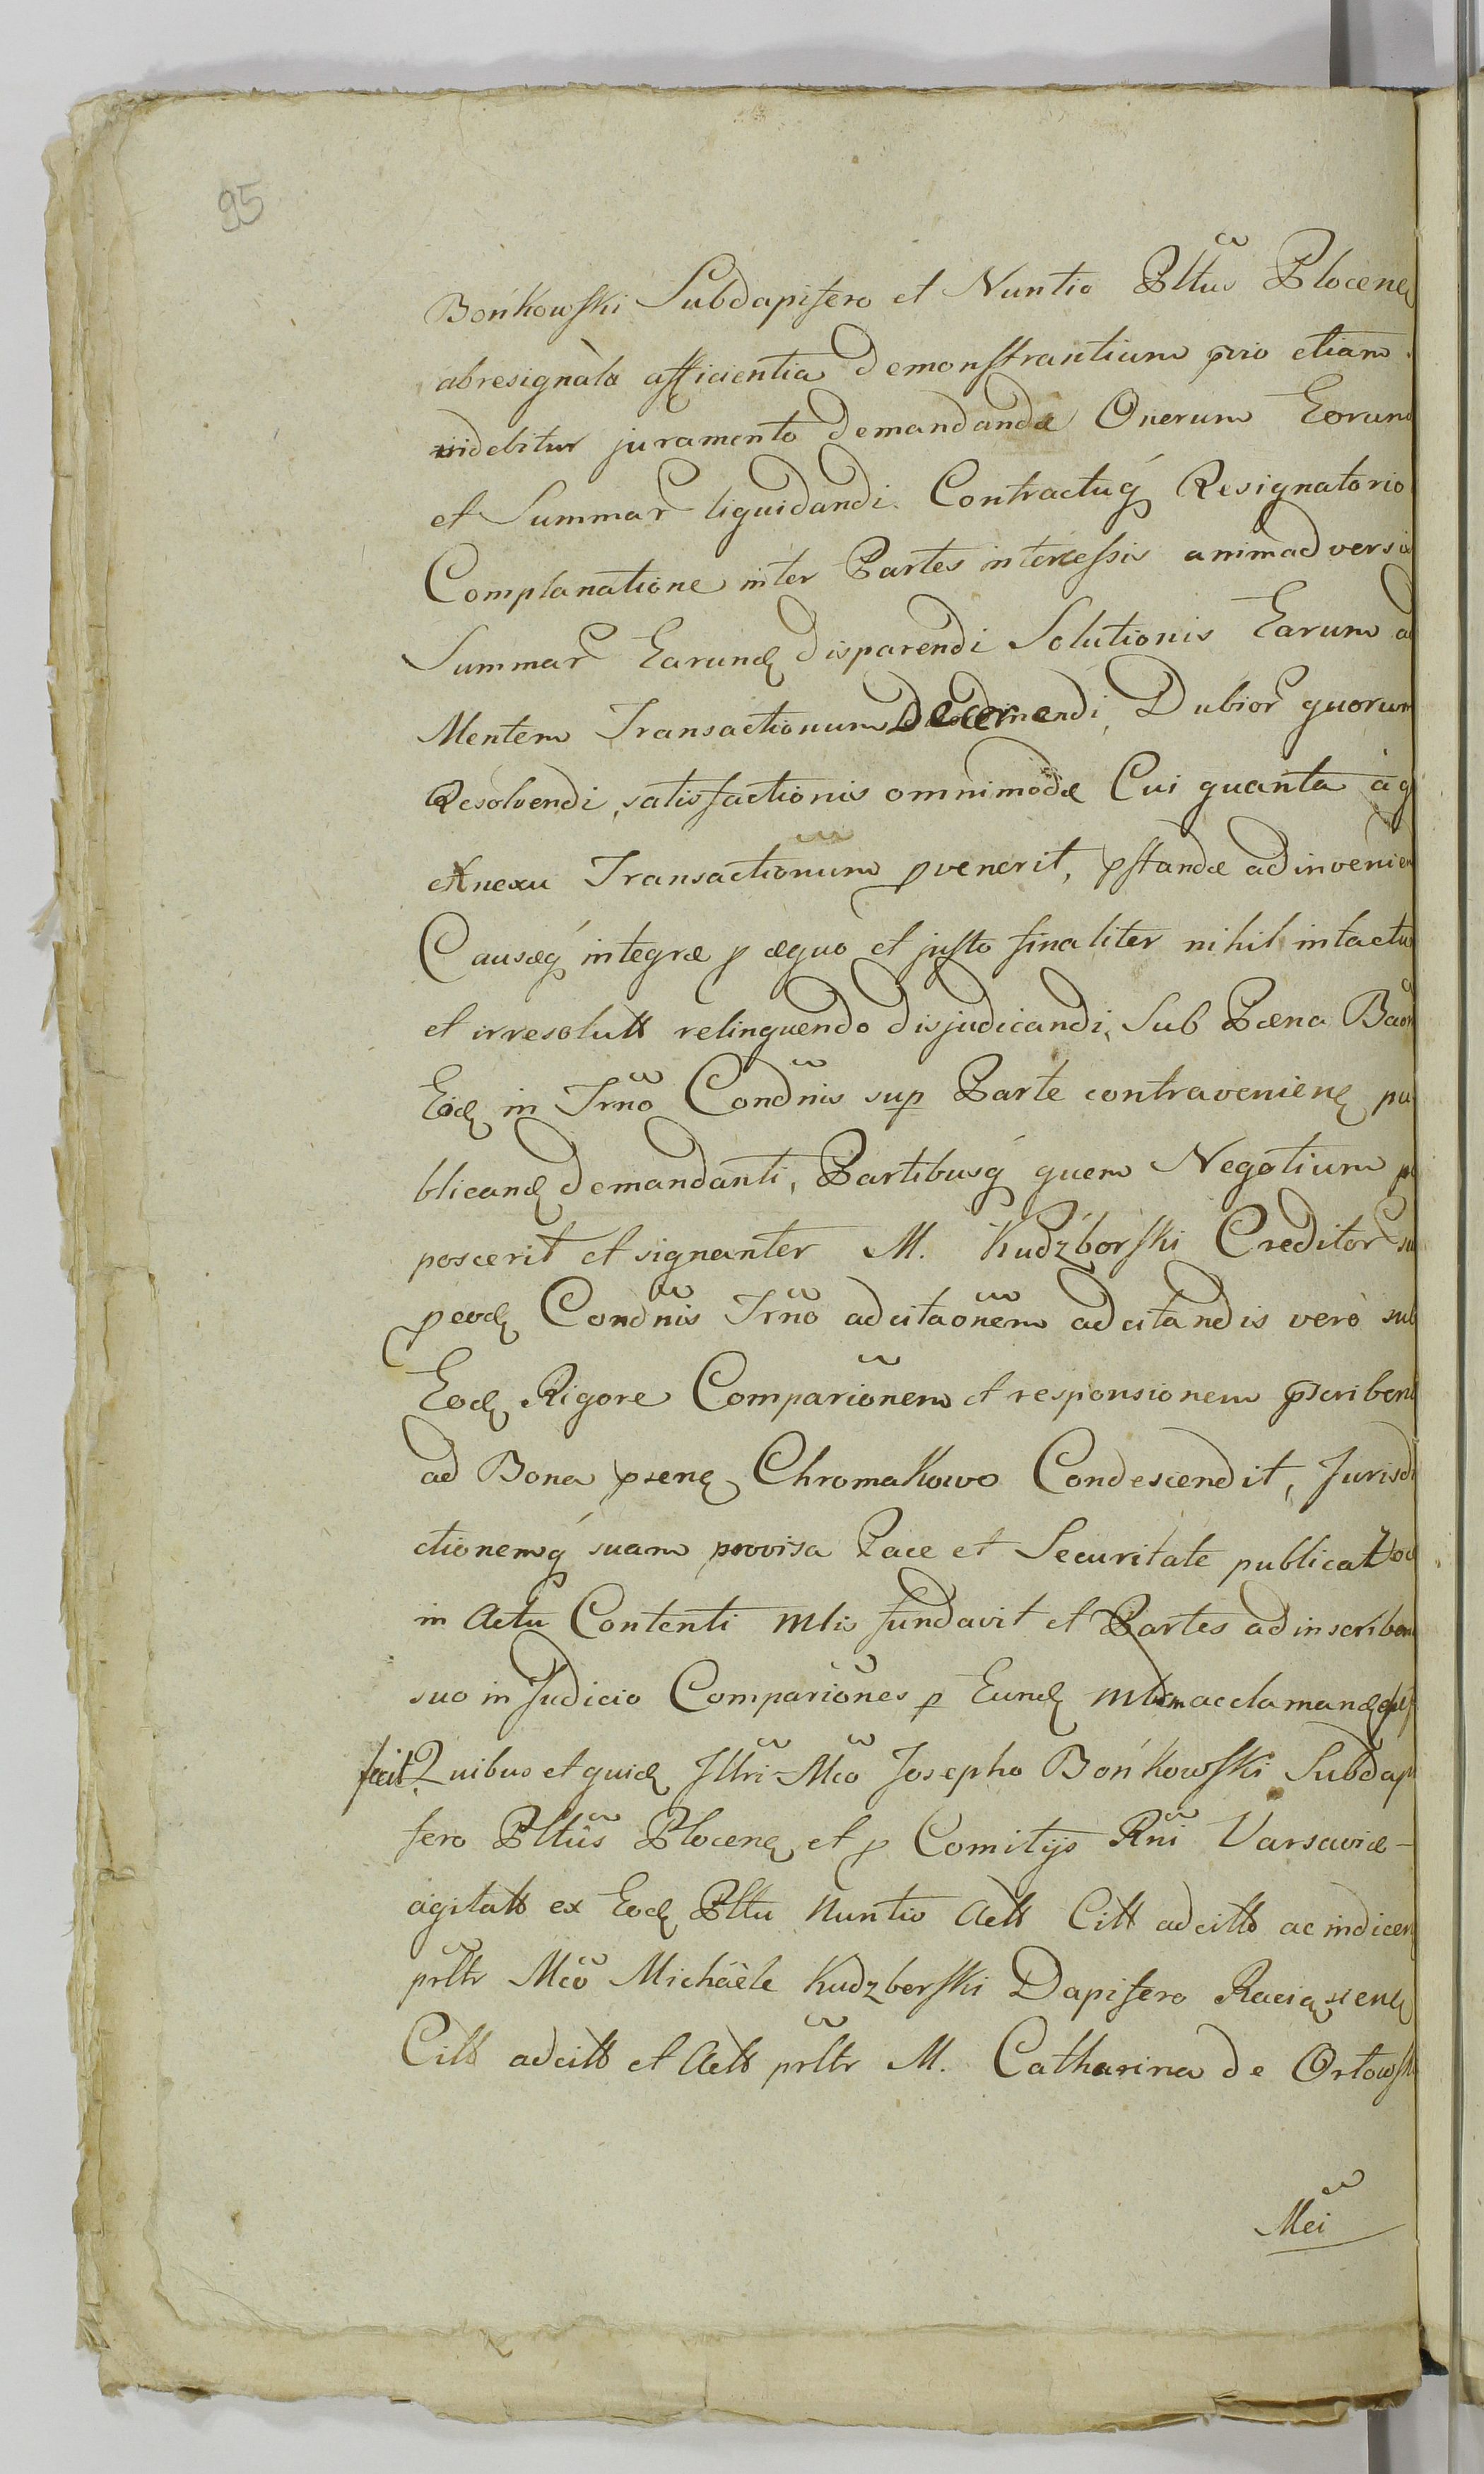 95
Bońkowski Subdapifero et Nuntio Plltus Plocens
abresignàta afficientia demonstrantium prio etiam
videbitur juramento demandandæ Onerum Eorum
et Summar liquidandi Contractuq́ Resignatorio
Complanatione inter Partes intercessis animadversis
Summar Earund disparendi Solutionis Earum ad
Mentem Transactionum Decernendi, Dubior quorum
Resolvendi, satisfactionis omnimodæ Cui quanta à q
Annexu Transactionum pvenerit, pstandæ adinvenien
Causæq́ integræ p æquo et justo finaliter nihil intactu
et irresolutt relinquendo disjudicandi, Sub Pæna Baon
Eid in Trño Condñis sup Parte contraveniens pu
blicand demandanti, Partibusq́ quem Negotium
poscerit et signanter M. Kudzborski Creditor
p eod Condñis Trño adcitaõnem adcitandis verò sub
Eod Rigore Compariõnem et responsionem pscribend
ad Bona psens Chromakowo Condescendit, Jurisdi
ctionemq́ suam provisa Pace et Securitate publicat
in Actu Contenti Mlis fundavit et Partes ad inscribend
suo in Judicio Compariões p Eund Mlem acclamand
fecit. Quibus et quid Jllri Mco Josepho Bońkowski Subdapi
fero Plltûs Plocens et p Comitijs Rñi Varsaviæ
agitatt ex Eod Plltu Nuntio Actt Citt adcitt ac indicen
prltr Mco Michaële Kudzborski Dapifero Raciąsiens
Citt adcitt et Actt prltr M. Catharina de Orłowsk
Mci